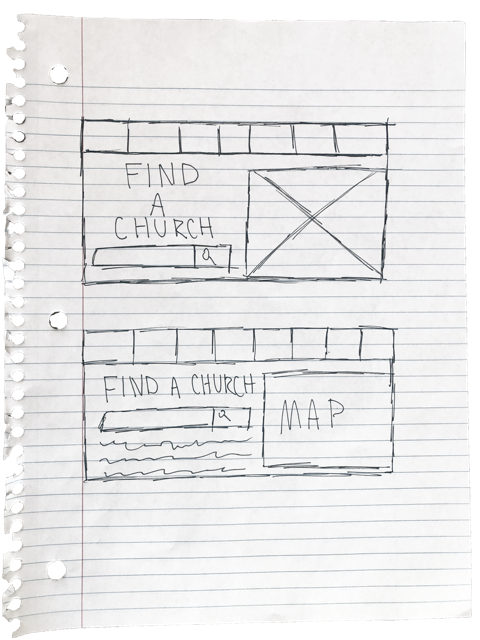 FIND
A
CHURCH
FIND A CHURCH
MAP